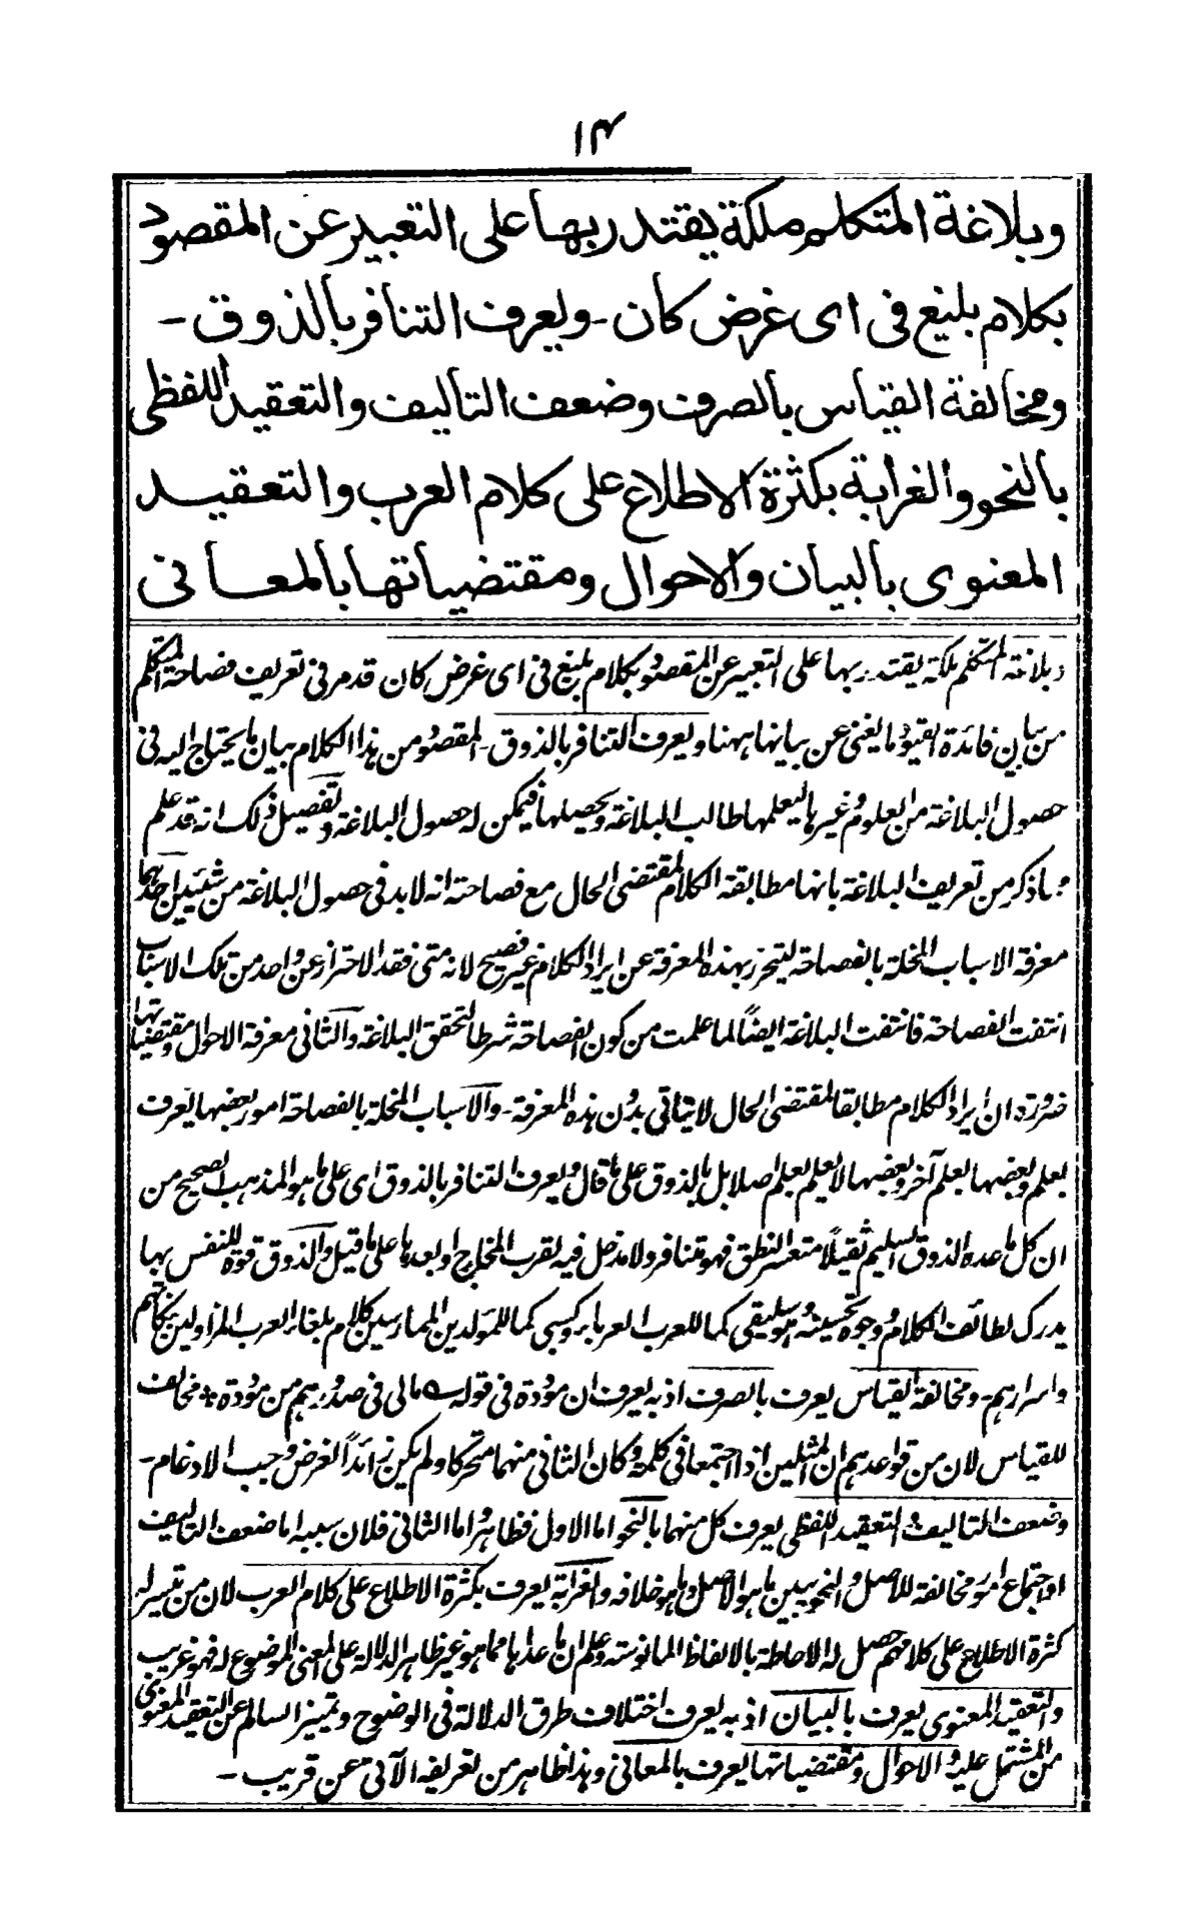 ۱۴
وبلاغة المتكلم ملكة يقتدر بها على التعبير عن المقصود
بكلام بليغ في اى غرض كان - ويعرف التنافر بالذوق -
ومخالفة القياس بالصرف وضعف التأليف والتعقيد اللفظى
بالنحو والغرابة بكثرة الاطلاع على كلام العرب والتعقيد
المعنوى بالبيان والاحوال ومقتضياتها بالمعانى
وبلاغة المتكلم ملكة يقتدر بها على التعبير عن المقصود بكلام بليغ فى اى غرض كان قد مر فى تعريف فصاحة المتكلم
من بيان فائدة القيود ما يغنى عن بيانها ههنا ويعرف التنافر بالذوق - المقصود من هذا الكلام بيان ما يحتاج اليه فى
حصول البلاغة من العلوم وغيرها ليعلمها طالب البلاغة ويحصلها فيمكن له حصول البلاغة وتفصيل ذلك انه قد علم
مما ذكر من تعريف البلاغة بانها مطابقة الكلام لمقتضى الحال مع فصاحته انه لابد فى حصول البلاغة من شيئين احدهما
معرفة الاسباب المخلة بالفصاحة ليتحرز بهذه المعرفة عن ايراد الكلام غير فصيح لانه متى فقد الاحتراز عن واحد من تلك الاسباب
انتفت الفصاحة فانتفت البلاغة ايضًا لما علمت من كون الفصاحة شرطا لتحقق البلاغة والثانى معرفة الاحوال ومقتضياتها
ضرورة ان ايراد الكلام مطابقا لمقتضى الحال لا يتأتى بدون هذه المعرفة - والاسباب المخلة بالفصاحة امور بعضها يعرف
بعلم وبعضها بعلم آخر وبعضها لا يعلم بعلم اصلا بل بالذوق على ما قال ويعرف التنافر بالذوق اى على ما هو المذهب الصحيح من
ان كل ما عده الذوق السليم ثقيلًا متعسر النطق فهو متنافر ولا مدخل فيه لقرب المخارج او بعدها على ما قيل والذوق قوة للنفس بها
يدرك لطائف الكلام ووجوه تحسينه وهو سليقى كما للعرب العرباء وكسبى كما للمولدين الممارسين كلام بلغاء العرب المزاولين
واسرارهم - ومخالفة القياس يعرف بالصرف اذ به يعرف ان مؤددة فى قوله ۵ مالى فى صدورهم من مؤددة ÷ مخالف
للقياس لان من قواعدهم ان المثلين اذا اجتمعا فى كلمة وكان الثانى منهما متحركا ولم يكن زائدًا لغرض وجب الادغام -
وضعف التاليف والتعقيد اللفظى يعرف كل منهما بالنحو اما الاول فظاهر واما الثانى فلان سببه اما ضعف التاليف
او اجتماع امور مخالفة للاصل والنحو يبين ما هو الاصل وما هو خلافه والغرابة يعرف بكثرة الاطلاع على كلام العرب لان من تيسر له
كثرة الاطلاع على كلامهم حصل له الاحاطة بالالفاظ المانوسة وعلم ان ما عداها مما هو غير ظاهر الدلالة على المعنى الموضوع له فهو غريب
والتعقيد المعنوى يعرف بالبيان اذ به يعرف اختلاف طرق الدلالة فى الوضوح وتمييز السالم عن التعقيد المعنوى
من المشتمل عليه والاحوال ومقتضياتها يعرف بالمعانى وهذا ظاهر من تعريفه الآتى عن قريب -